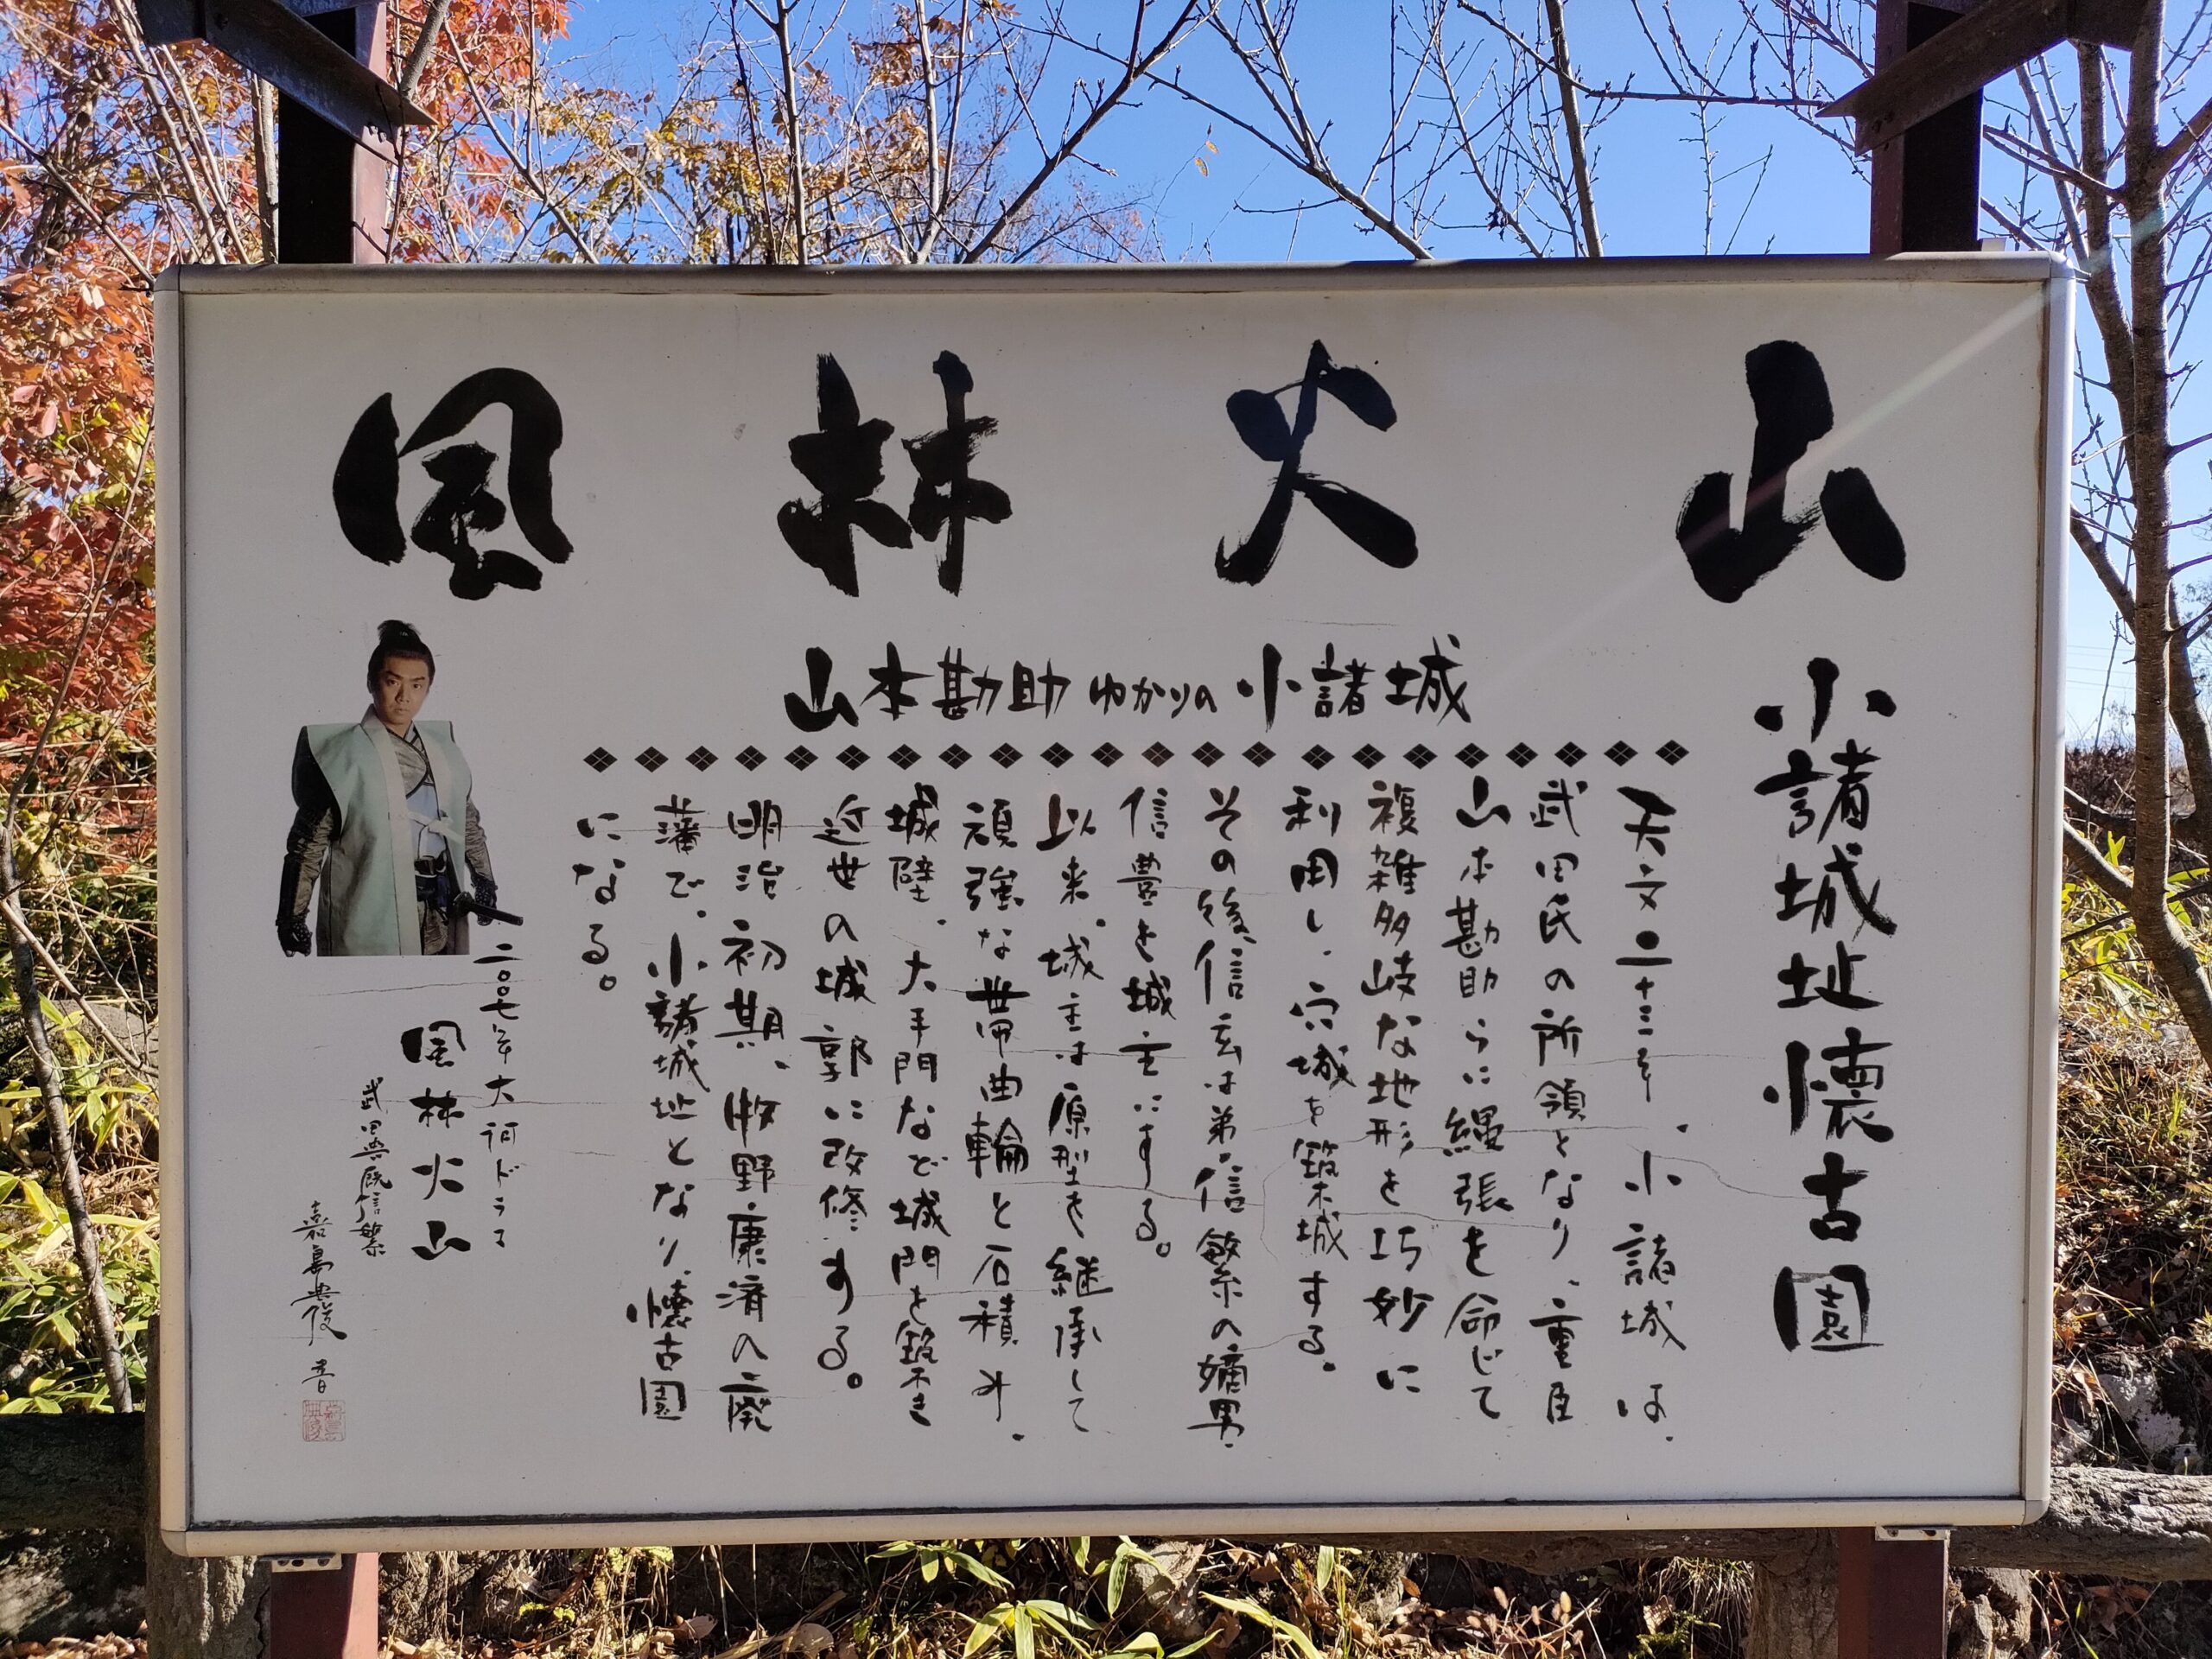 風林火山
小諸城址懐古園
山本勘助ゆかりの小諸城
天文二十三年、小諸城は、
武田氏の所領となり、重臣
山本勘助らに縄張を命じて
複雑多岐な地形を巧妙に
利用し、穴城を築城する。
その後、信玄は弟・信繁の嫡男・
信豊を城主にする。
以来、城主は原型を継承して
頑強な帯曲輪と石積み、
城壁、大手門など城門を築き
近世の城郭に改修する。
明治初期、牧野康済の廃
藩で、小諸城址となり、懐古園
になる。
二〇〇七年大河ドラマ
風林火山
武田典厩信繁
嘉島典俊 書